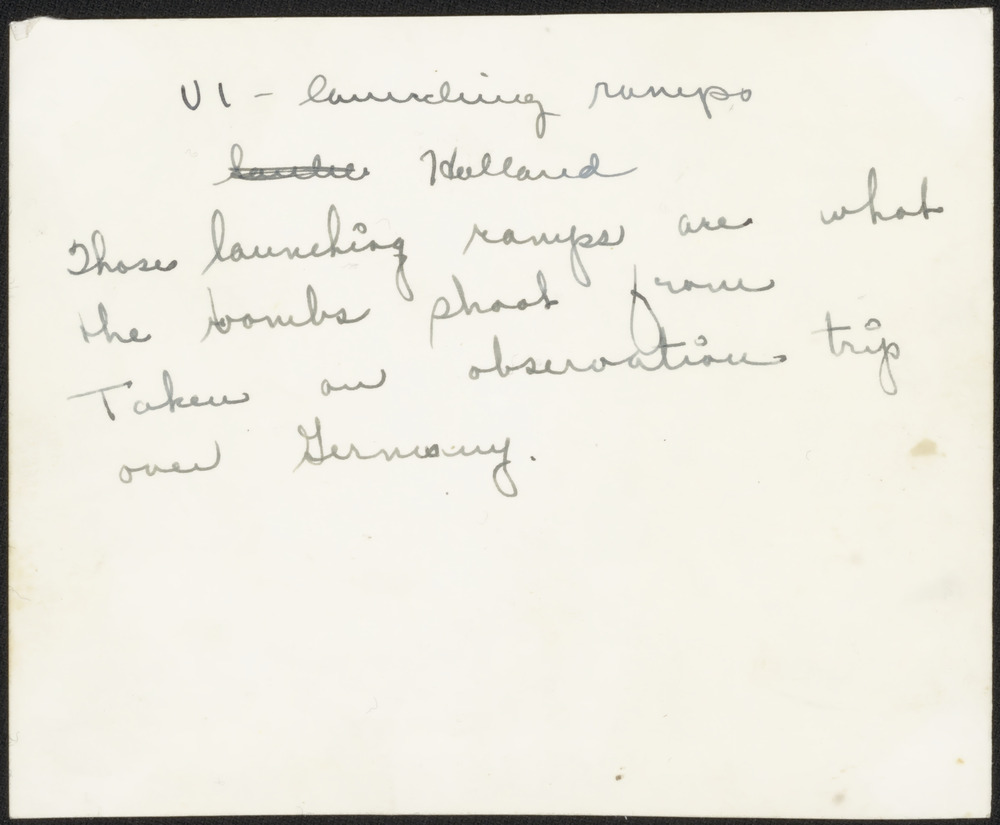 V1 - launching ramps
Holland
Those launching ramps are what
the bombs shoot from
Taken on observation trip
over Germany.